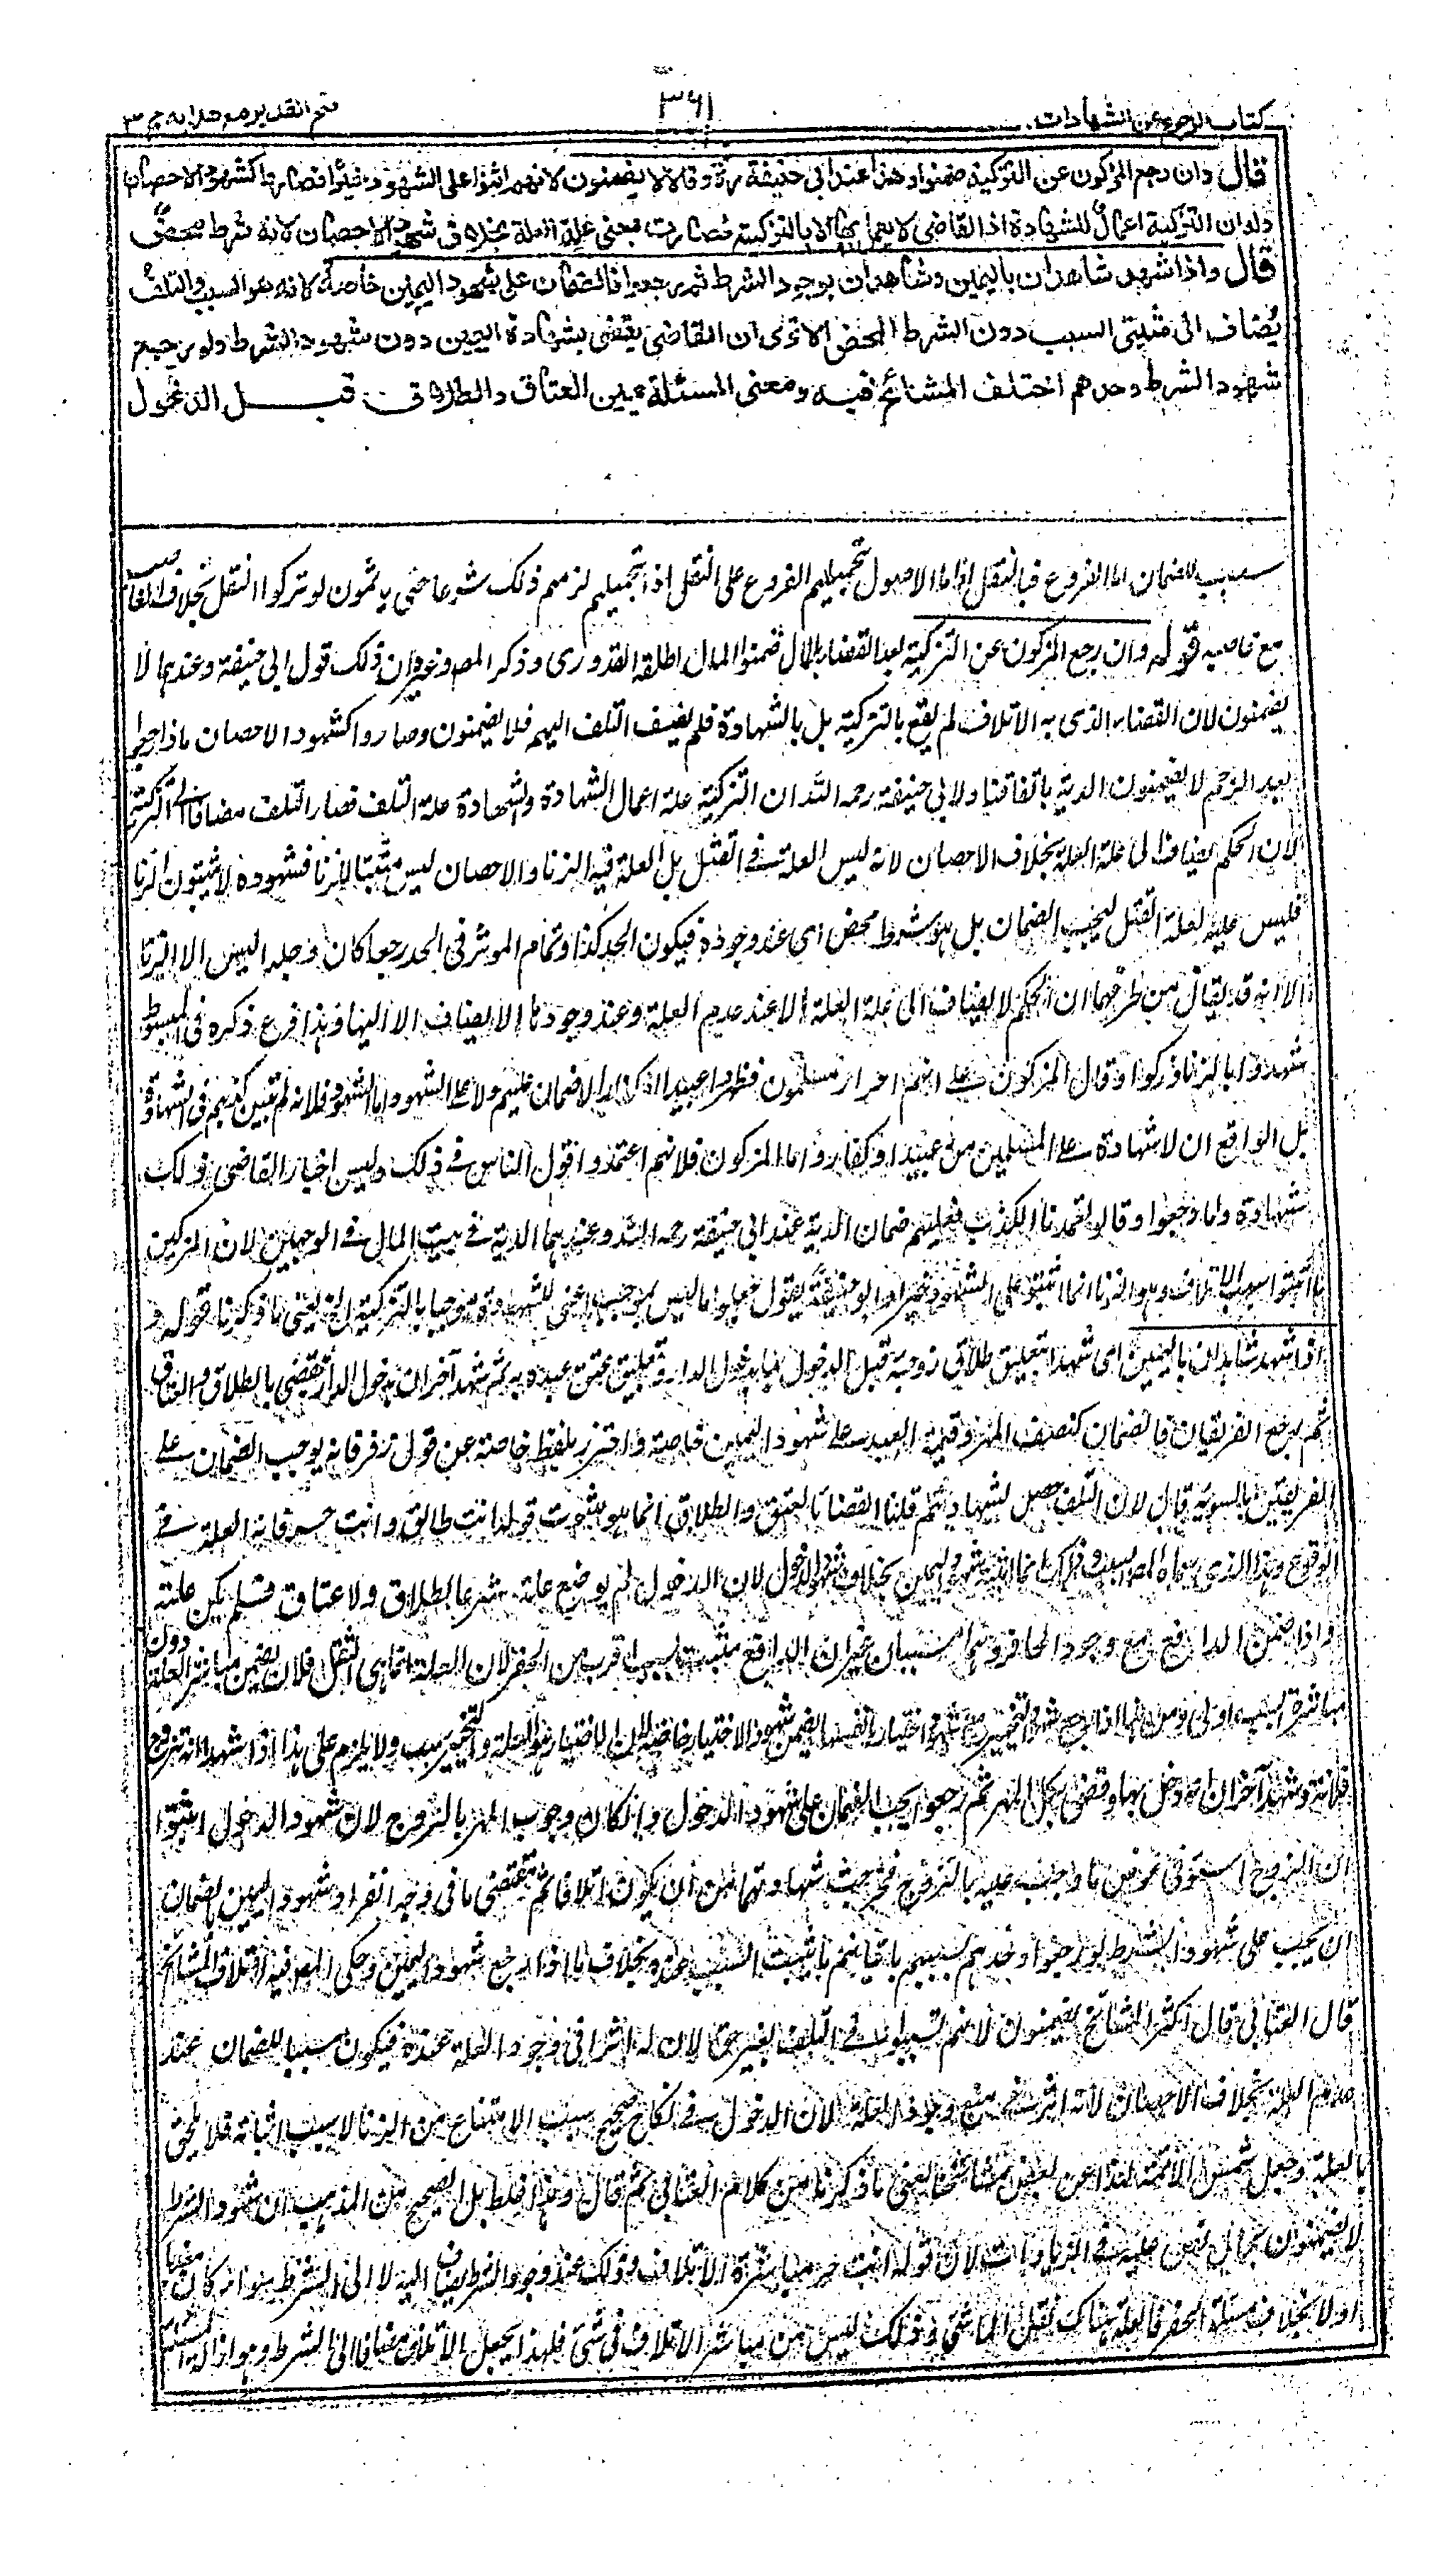 كتاب الرجوع عن الشهادات
٣٦١
فتح القدير مع هدايه ج ٣
قال وان رجع المزكون عن التزكية ضمنوا وهذا عند ابي حنيفة رح وقالا لا يضمنون لانهم اثنوا على الشهود خيرا فصاروا كشهود الاحصان
وله ان التزكية اعمال للشهادة اذ القاضي لا يعمل بها الا بالتزكية فصارت بمعنى علة العلة بخلاف شهود الاحصان لانه شرط محض
قال واذا شهد شاهدان باليمين وشاهدان بوجود الشرط ثم رجعوا فالضمان على شهود اليمين خاصة لانه هو السبب والتلف
يضاف الى مثبتي السبب دون الشرط المحض الا ترى ان القاضي يقضي بشهادة اليمين دون شهود الشرط ولو رجع
شهود الشرط وحدهم اختلف المشائخ فيه ومعنى المسئلة يمين العتاق والطلاق قبل الدخول
سبب للضمان اما الفروع فبالنقل واما الاصول بتحميلهم الفروع على النقل اذ بتحميلهم لزمهم ذلك شرعا حتى ياثمون لو تركوا النقل بخلاف الغاصب
مع غاصبه قوله وان رجع المزكون عن التزكية بعد القضاء بالمال ضمنوا المال اطلقه القدوري وذكر المص وغيره ان ذلك قول ابي حنيفة وعندهما لا
يضمنون لان القضاء الذي به الاتلاف لم يقع بالتزكية بل بالشهادة فلم يضف التلف اليهم فلا يضمنون وصاروا كشهود الاحصان اذا رجعوا
بعد الرجم لا يضمنون الدية باتفاقنا ولابي حنيفة رحمه الله ان التزكية علة اعمال الشهادة والشهادة علة التلف فصار التلف مضافا الى التزكية
لان الحكم يضاف الى علة العلة بخلاف الاحصان لانه ليس العلة في القتل بل العلة فيه الزنا والاحصان ليس مثبتا للزنا فشهوده لا يثبتون الزنا
فليس علة لعلة القتل ليجب الضمان بل هو شرط محض اي عند وجوده فيكون الحد كذا وتمام الموثر في الحد رجما كان او جلدا ليس الا الزنا
الا انه قد يقال من طرفهما ان الحكم لا يضاف الى علة العلة الا عند عدم العلة وعند وجودها لا يضاف الا اليها وهذا فرع ذكره في المبسوط
شهدوا بالزنا فزكوا وقال المزكون هم احرار مسلمون فظهروا عبيدا لا ضمان عليهم ولا على الشهود اما الشهود فلانه لم تبين كذبهم في الشهادة
بل الواقع ان لا شهادة على المسلمين من عبيد او كفار واما المزكون فلانهم اعتمدوا قول الناس في ذلك وليس اخبار القاضي بذلك
شهادة واما اذا رجعوا وقالوا تعمدنا الكذب فعليهم ضمان الدية عند ابي حنيفة رحمه الله وعندهما الدية في بيت المال في الوجهين لان المزكين
ما اثبتوا سبب الاتلاف وهو الزنا انما اثنوا على الشهود خيرا وابو حنيفة يقول جعلوا ما ليس بموجب اعني الشهادة موجبا بالتزكية الخ يعني ما ذكرنا قوله و
اذا شهد شاهدان باليمين اي شهدا بتعليق طلاق زوجته قبل الدخول بها بدخول الدار وتعليق عتق عبده به ثم شهد آخران بدخول الدار فقضى بالطلاق والعتاق
ثم رجع الفريقان فالضمان كنصف المهر وقيمة العبد على شهود اليمين خاصة واحترز بلفظ خاصة عن قول زفر فانه يوجب الضمان على
الفريقين بالسوية قال لان التلف حصل بشهادتهم قلنا القضاء بالعتق والطلاق انما هو بثبوت قوله انت طالق وانت حر فانه العلة في
الوقوع وهذا الذي سماه المص السبب وذلك انما اثبته شهود اليمين بخلاف شهود الدخول لان الدخول لم يوضع علة شرعا لطلاق ولا عتاق فلم يكن علة
واذا ضمن الدافع مع وجود الحافر وهما مسببان غير ان الدافع مثبت لسبب اقرب من الحفر لان العلة انما هي الثقل فلان يضمن مباشر العلة دون
مباشرة السبب اولى ومن هذا اذا رجع شهود التخيير مع شهود اختيارها نفسها يضمن شهود الاختيار خاصة لان الاختيار هو العلة والتخيير سبب ولا يلزم على هذا اذا شهدا انه تزوج
فلانة وشهد آخران انه دخل بها وقضى بكل المهر ثم رجعوا يجب الضمان على شهود الدخول وان كان وجوب المهر بالتزوج لان شهود الدخول اثبتوا
ان الزوج استوفى عوض ما وجب عليه بالتزوج فخرجت شهادتهما من ان يكون اتلافا ثم مقتضى ما في وجه انفراد شهود اليمين بالضمان
ان يجب على شهود الشرط لو رجعوا وحدهم لسببهم باتيانهم باثبات السبب وحده بخلاف ما اذا رجع شهود اليمين وحكى المص فيه اختلاف المشائخ
قال العتابي قال اكثر المشائخ يضمنون لانهم تسببوا في التلف بغير حق لان له اثرا في وجود العلة عنده فيكون سببا للضمان عند
عدم العلة بخلاف الاحصان لانه اثر في منع وجود العلة لان الدخول في نكاح صحيح سبب الامتناع من الزنا لا سبب اتيانه فلا يلحق
بالعلة وجعل شمس الائمة هذا عن بعض مشائخنا يعني ما ذكرنا من كلام العتابي ثم قال وهذا غلط بل الصحيح من المذهب ان شهود الشرط
لا يضمنون بحال نص عليه في الزيادات لان قوله انت حر مباشرة الاتلاف وذلك عند وجود الشرط يضاف اليه لا الى الشرط سواء كان تعديا
او لا بخلاف مسئلة الحفر فالعلة هناك ثقل الماشي وذلك ليس من مباشر الاتلاف في شئ فلهذا يجعل الاتلاف مضافا الى الشرط وهو ازالة المسكة